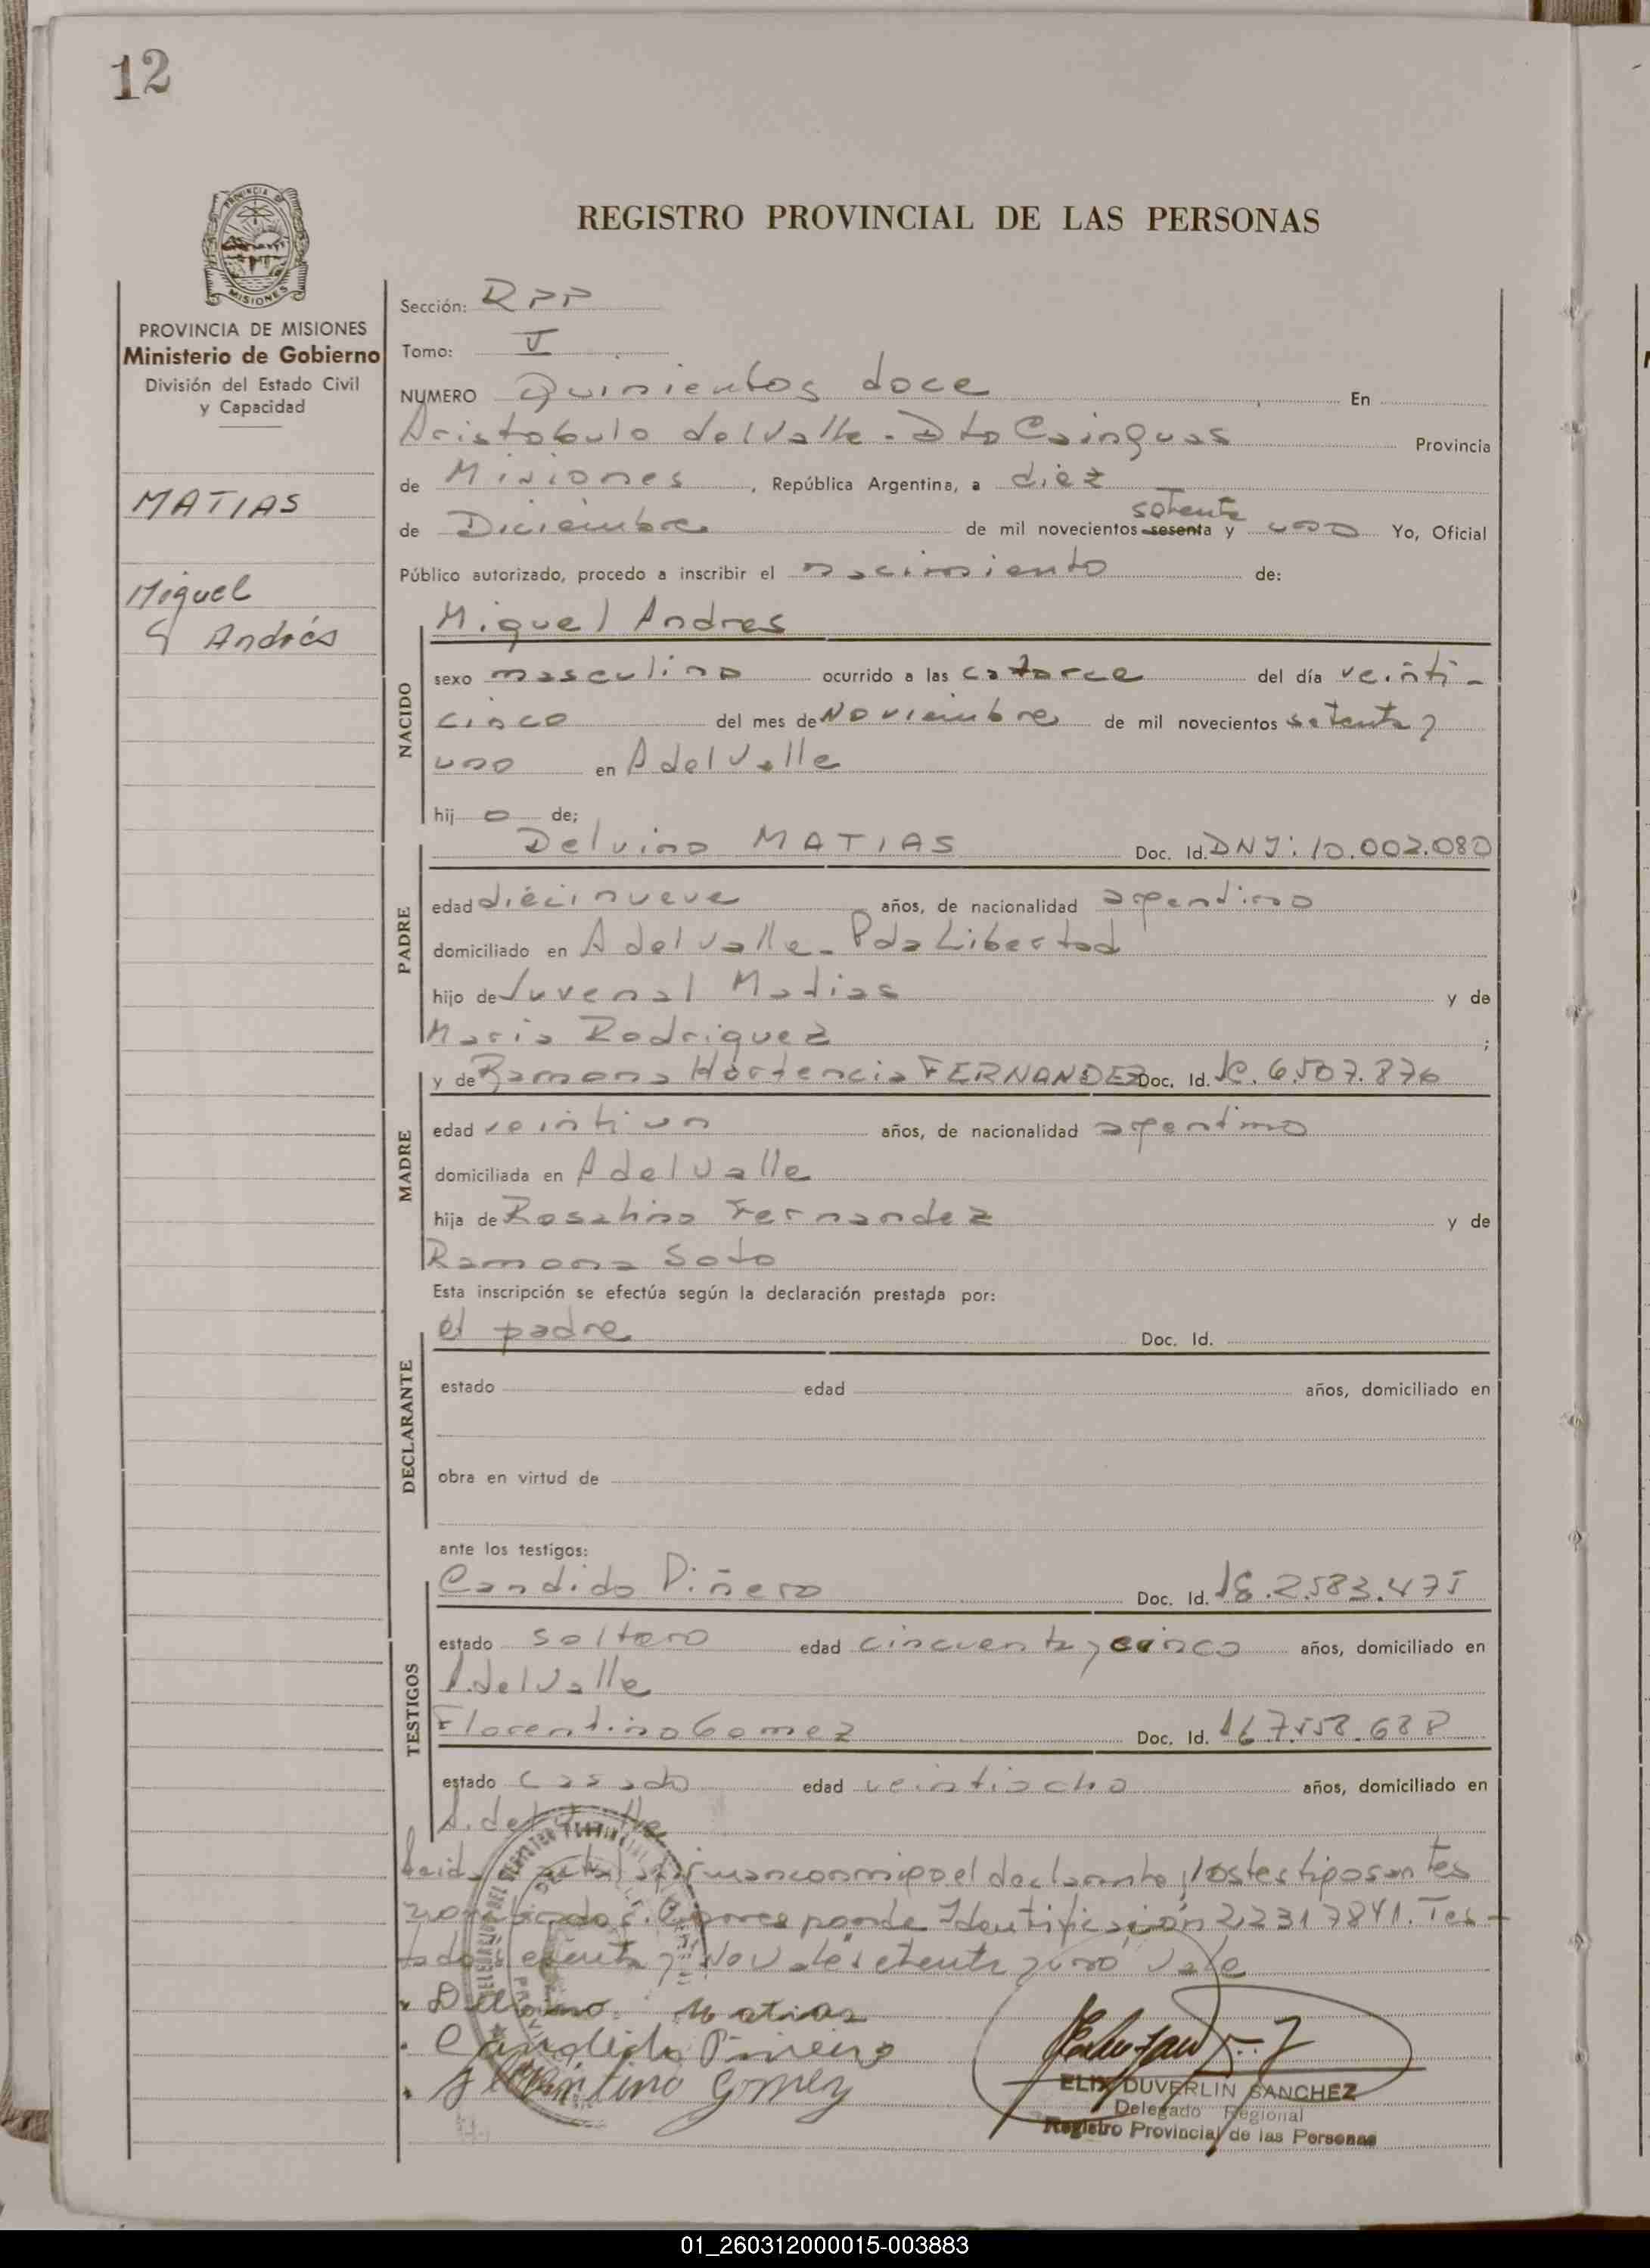 12
PROVINCIA DE
MISIONES
REGISTRO PROVINCIAL DE LAS PERSONAS
PROVINCIA DE MISIONES
Ministerio de Gobierno
División del Estado Civil
y Capacidad
MATIAS
Miguel
Andrés
Sección: RPP
Tomo: V
NUMERO Quinientos doce En
Aristobulo del Valle - Dto Cainguas Provincia
de Misiones, República Argentina, a diez
setenta
de Diciembre de mil novecientos sesenta y uno Yo, Oficial
Público autorizado, procedo a inscribir el nacimiento de:
NACIDO
Miguel Andres
sexo masculino ocurrido a las catorce del día veinti-
cinco del mes de Noviembre de mil novecientos setenta y
uno en A del Valle
hijo de;
PADRE
Delvino MATIAS Doc. Id. DNI: 10.002.080
edad diecinueve años, de nacionalidad argentino
domiciliado en A del Valle - Pda Libertad
hijo de Juvenal Matias y de
Maria Rodriguez ;
MADRE
y de Ramona Hortencia FERNANDEZ Doc. Id. lC. 6.507.876
edad veintiun años, de nacionalidad argentina
domiciliada en A del Valle
hija de Rosalino Fernandez y de
Ramona Soto
Esta inscripción se efectúa según la declaración prestada por:
DECLARANTE
el padre Doc. Id.
estado edad años, domiciliado en
obra en virtud de
ante los testigos:
TESTIGOS
Candido Piñero Doc. Id. 2.583.475
estado soltero edad cincuenta y cinco años, domiciliado en
A. del Valle
Florentino Gomez Doc. Id. 7.558.688
estado casado edad veintiocho años, domiciliado en
A. del Valle
Leida el acta, firman conmigo el declarante y los testigos antes
nombrados. Corresponde Identificación 22317841. Tes-
tado sesenta y Nov de setenta y uno Vale
Delvino Matias
Candido Pineiro
Florentino Gomez
ELIX DUVERLIN SANCHEZ
Delegado Regional
Registro Provincial de las Personas
01_260312000015-003883